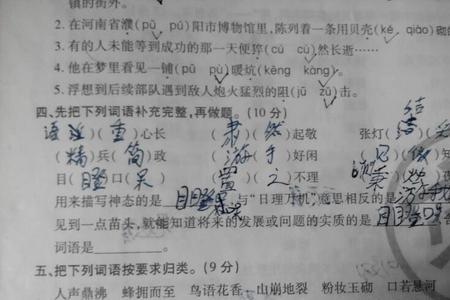 镇的街外。
2.在河南省濮(pū pú)阳市博物馆里,陈列着一条用贝壳(ké qiào)砌
3.有的人未能等到成功的那一天便猝(cù cù)然长逝……
4.他在梦里看见一铺(pū pù)暖炕(kēng kàng)。
5.浮想到后续部队遇到敌人炮火猛烈的阻(jū zǔ)击。
四、先把下列词语补充完整,再做题。(10分)
语 重 ( 重 )心长 ( 肃 )( 然 )起敬 张灯( 结 )(
( 精 )兵( 简 )政 ( 游 )( 手 )好闲
目( 瞪 )口( 呆 ) ( 置 )( 之 )不理
用来描写神态的是 目瞪口呆 ,与“日理万机”意思相反的是 游手
见到一点苗头,就能知道将来的发展或问题的实质的是 目瞪口
词语是 。
五、把下列词语按要求归类。(9分)
人声鼎沸 蜂拥而至 鸟语花香 山崩地裂 粉妆玉砌 口若悬河